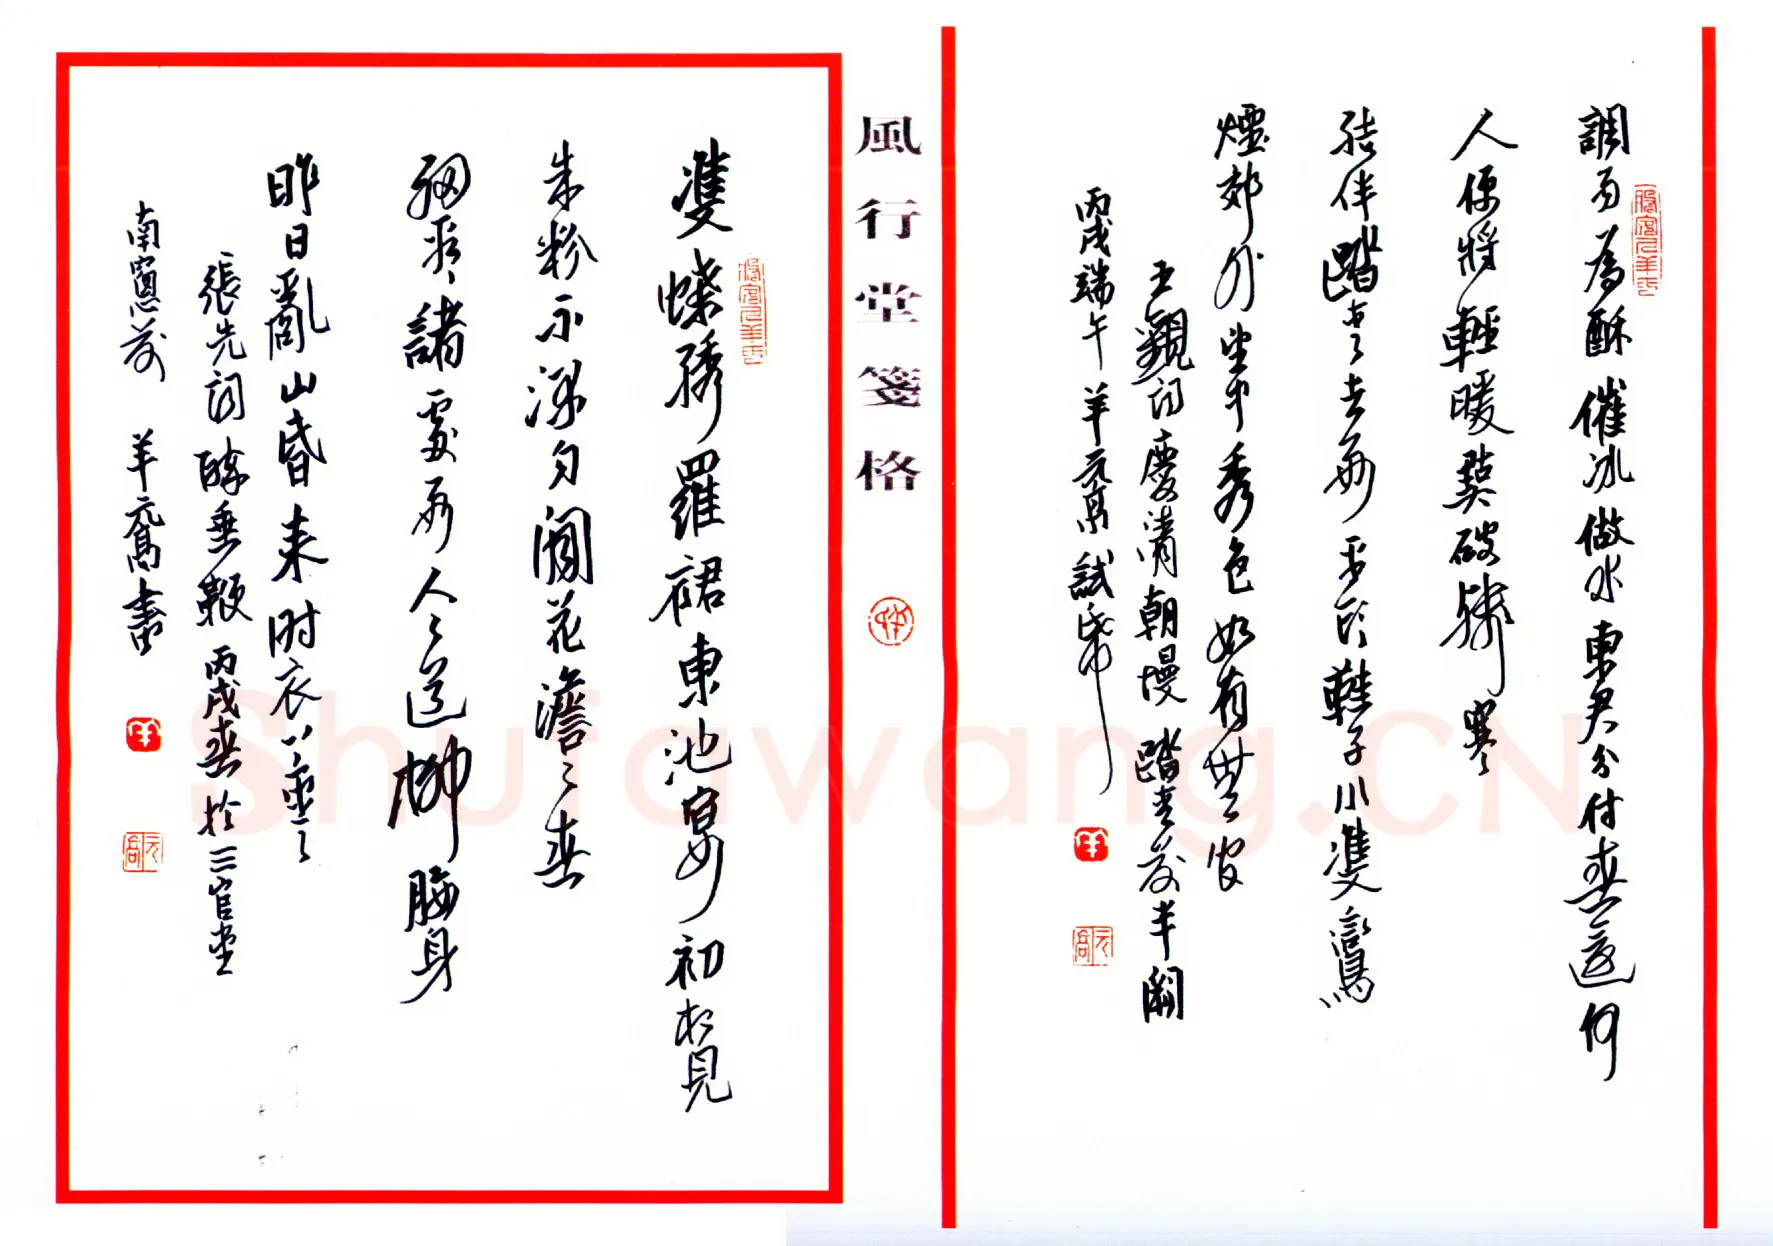 調雨為酥催冰做水東君分付春還何
人便將輕暖點破殘寒
結伴踏青去好平頭鞋子小雙鸞
煙郊外望中秀色如有無間
王觀詞慶清朝慢踏青前半闋
丙戌端午羊元喬試帋
羊
元喬
風行堂箋格
雙蝶繡羅裙東池宴初相見
朱粉不深勻閑花澹〻春
細看諸處好人〻道柳腰身
昨日亂山昏來時衣上雲
張先詞醉垂鞭丙戌春於三官堂
南窻前 羊元喬書
羊
元喬
Shufawang.CN